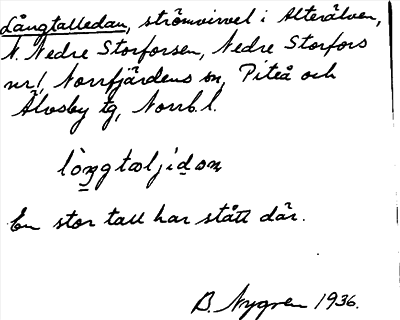 Långtalledan, strömvirvel i Alterälven,
N. Nedre Storforsen, Nedre Storfors
nr 1, Norrfjärdens sn, Piteå och
Älvsby tg, Norrb. l.
En stor tall har stått där.
B. Nygren 1936.